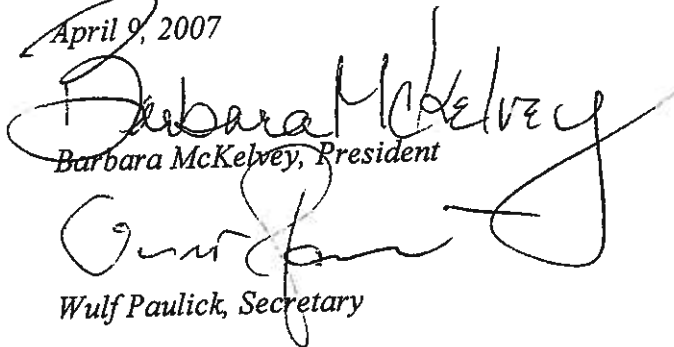 April 9, 2007
Barbara McKelvey
Barbara McKelvey, President
Wulf Paulick, Secretary